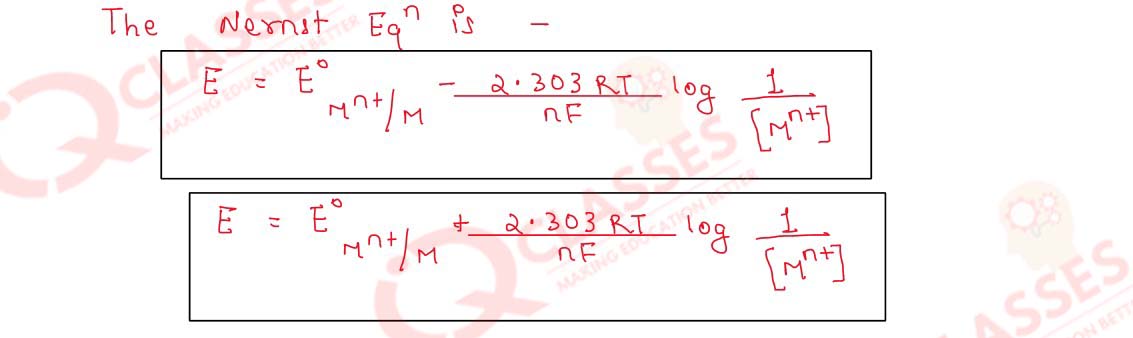 The Nernst Eqⁿ is -
E = E° Mⁿ⁺/M - 2.303 RT / nF log 1 / [Mⁿ⁺]
E = E° Mⁿ⁺/M + 2.303 RT / nF log 1 / [Mⁿ⁺]
CLASSES
MAKING EDUCATION BETTER
CLASSES
MAKING EDUCATION BETTER
ASSES
ON BETTER